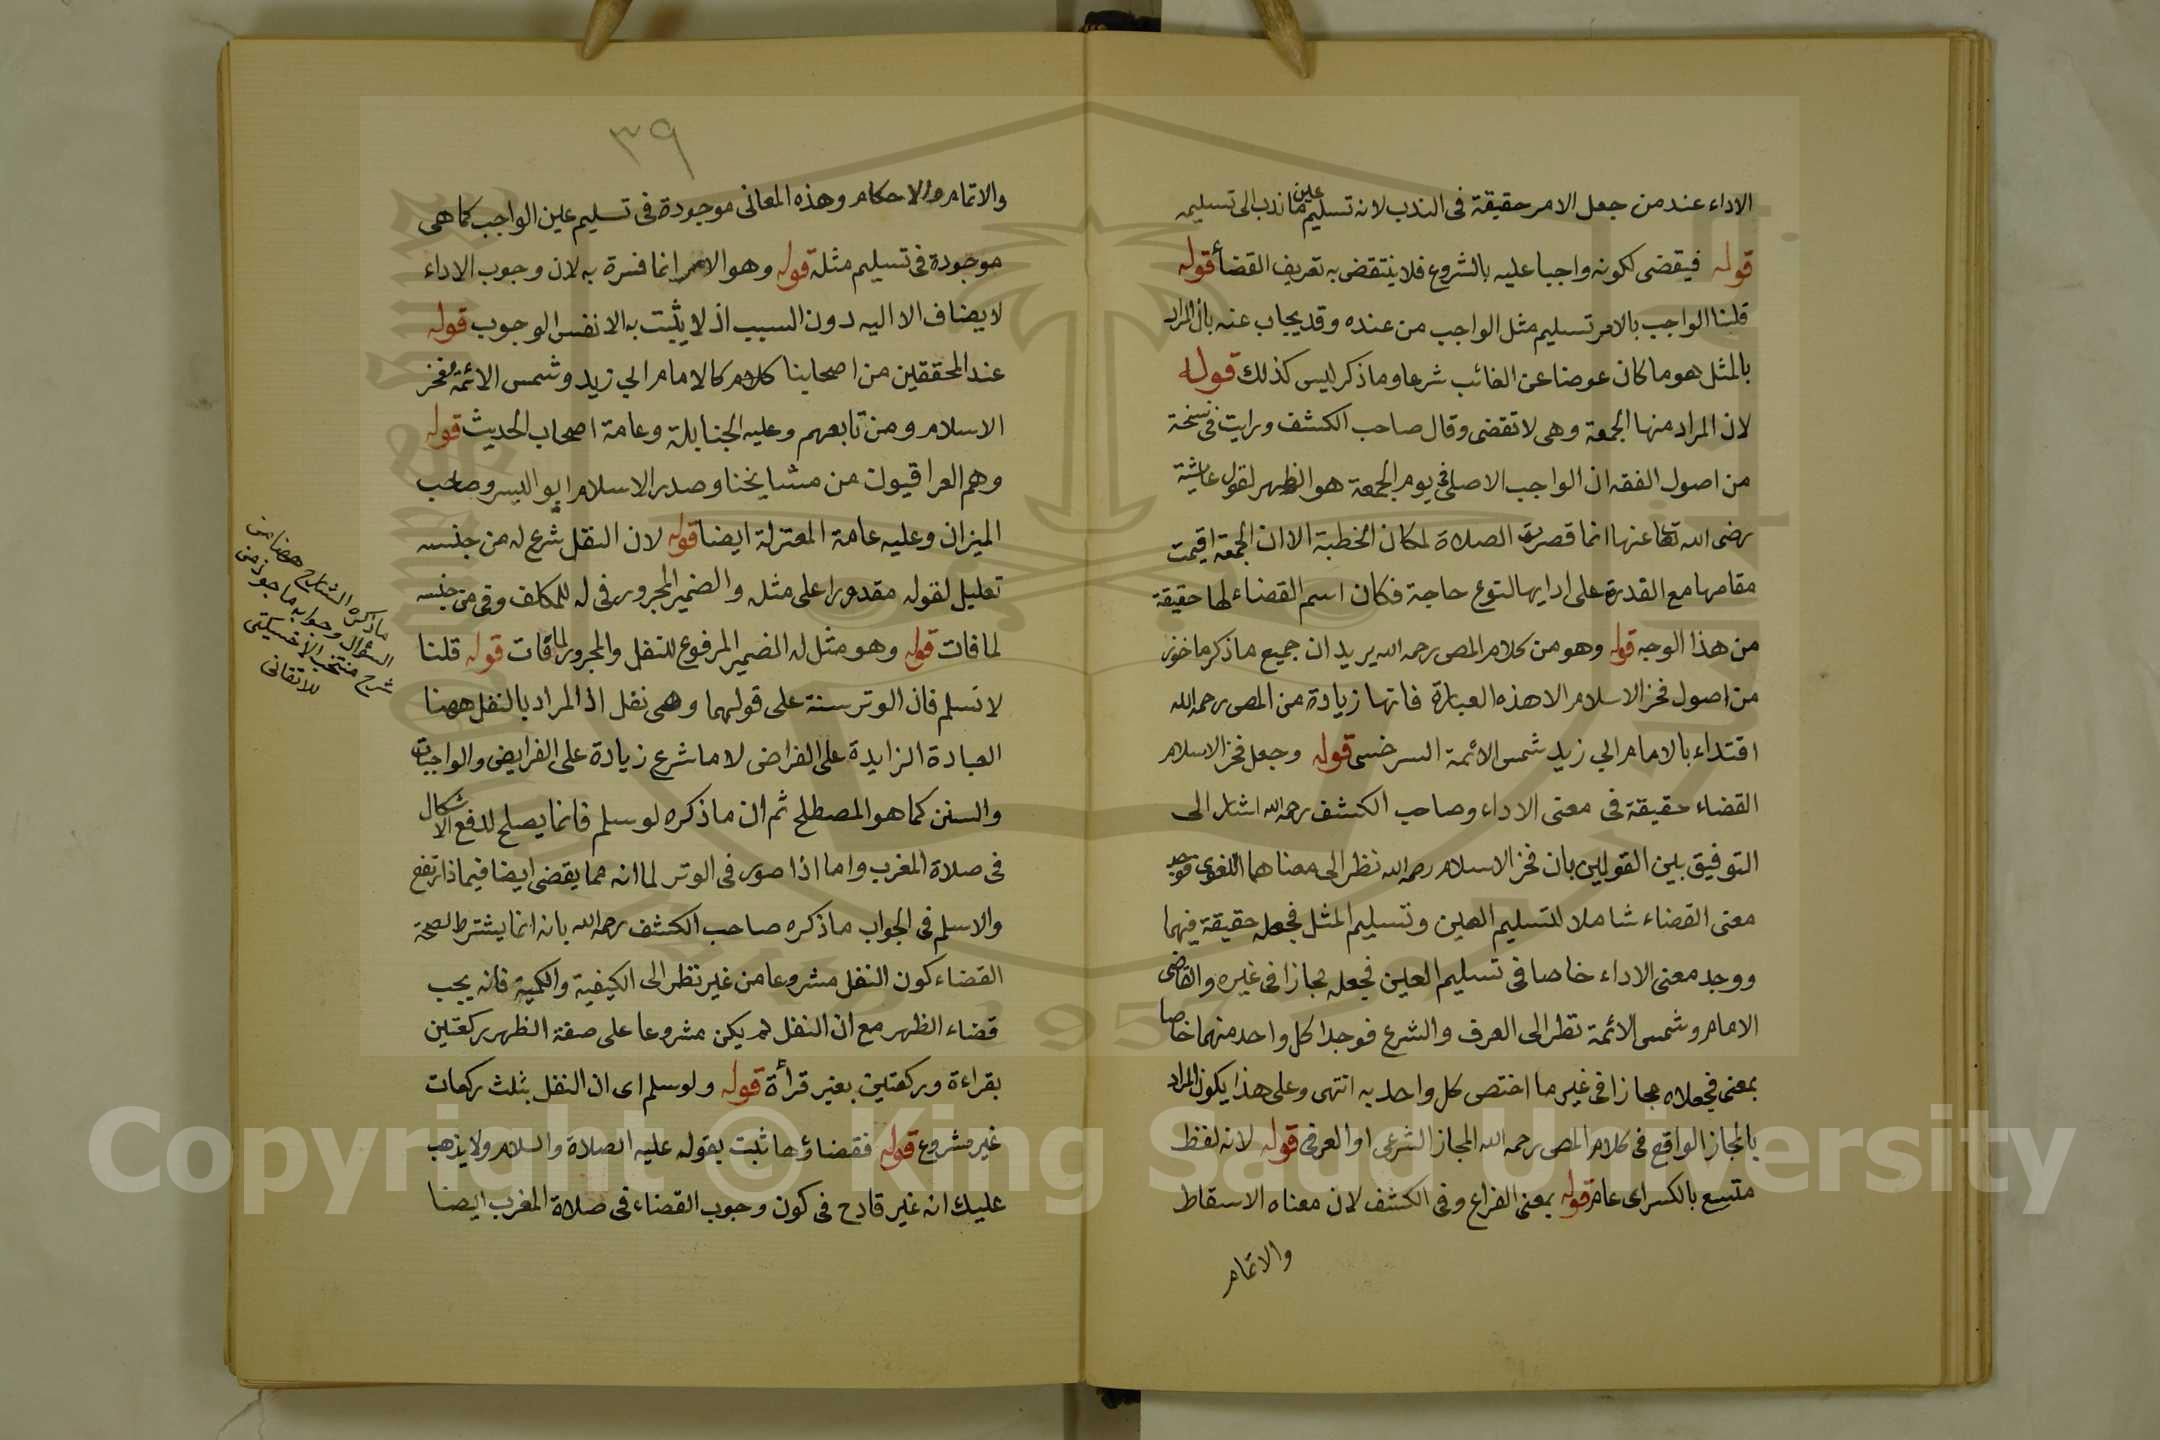 الاداء عند من جعل الامر حقيقة فى الندب لانه تسليم عين ما ندب الى تسليمه
قوله فيقضى لكونه واجبا عليه بالشروع فلا ينتقض به تعريف القضاء قوله
قلنا الواجب بالامر تسليم مثل الواجب من عنده وقد يجاب عنه بان المراد
بالمثل هو ما كان عوضا عن الفائب شرعا وما ذكر ليس كذلك قوله
لان المراد منها الجمعة وهى لا تقضى وقال صاحب الكشف ورايت فى نسخة
من اصول الفقه ان الواجب الاصلى فى يوم الجمعة هو الظهر لقول عائشة
رضى الله تعا عنها انما قصرت الصلاة لمكان الخطبة الا ان الجمعة اقيمت
مقامها مع القدرة على ادايها لنوع حاجة فكان اسم القضاء لها حقيقة
من هذا الوجه قوله وهو من كلام المص رحمه الله يريد ان جميع ما ذكر ماخوذ
من اصول فخر الاسلام الا هذه العبارة فانها زيادة من المص رحمه الله
اقتداء بالامام ابي زيد شمس الائمة السرخسى قوله وجعل فخر الاسلام
القضاء حقيقة فى معنى الاداء وصاحب الكشف رحمه الله اشار الى
التوفيق بين القولين بان فخر الاسلام رحمه الله نظر الى معناهما اللغوى فوجد
معنى القضاء شاملا لتسليم العين وتسليم المثل فجعله حقيقة فيهما
ووجد معنى الاداء خاصا فى تسليم العين فجعله مجازا فى غيره والقاضى
الامام وشمس الائمة نظر الى العرف والشرع فوجدا كل واحد منهما خاصا
بمعنى فجعلاه مجازا فى غير ما اختص كل واحد به انتهى وعلى هذا يكون المراد
بالمجاز الواقع فى كلام المص رحمه الله المجاز الشرعى او العرفى قوله لانه لفظ
متسع بالكسر اى عام قوله بمعنى الفراغ وفى الكشف لان معناه الاسقاط
والاتمام
٣٩
والاتمام والاحكام وهذه المعانى موجودة فى تسليم عين الواجب كما هى
موجودة فى تسليم مثله قوله وهو الامر انما فسرة به لان وجوب الاداء
لا يضاف الا اليه دون السبب اذ لا يثبت به الا نفس الوجوب قوله
عند المحققين من اصحابنا كلام كالامام ابي زيد وشمس الائمة وفخر
الاسلام ومن تابعهم وعليه الحنابلة وعامة اصحاب الحديث قوله
وهم العراقيون من مشايخنا وصدر الاسلام ابو اليسر وصاحب
الميزان وعليه عامة المعتزلة ايضا قوله لان النفل شرع له من جنسه
تعليل لقوله مقدورا على مثله والضمير المجرور فى له للمكلف وفى من جنسه
لما فات قوله وهو مثل له الضمير المرفوع للنفل والمجرور لما فات قوله قلنا
لا نسلم فان الوتر سنة على قولهما وهى نفل اذ المراد بالنفل ههنا
العبادة الزايدة على الفراض لا ما شرع زيادة على الفرايض والواجبات
والسنن كما هو المصطلح ثم ان ما ذكره لو سلم فانما يصلح لدفع الاشكال
فى صلاة المغرب واما اذا صور فى الوتر لما انه مما يقضى ايضا فيماذا ترفع
والاسلم فى الجواب ما ذكره صاحب الكشف رحمه الله بانه انما يشترط لصحة
القضاء كون النفل مشروعا من غير نظر الى الكيفية والكمية فانه يجب
قضاء الظهر مع ان النفل لم يكن مشروعا على صفة الظهر بركعتين
بقراءة وركعتين بغير قرأة قوله ولو سلم اى ان النفل بثلث ركعات
غير مشروع قوله فقضاؤها ثبت بقوله عليه الصلاة والسلام ولا يذهب
عليك انه غير قادح فى كون وجوب القضاء فى صلاة المغرب ايضا
ما ذكره الشارح ههنا من
السؤال وجوابه ماخوذ من
شرح منتخب الاخسيكتى
للاتقانى
Copyright © King Saud University
1957